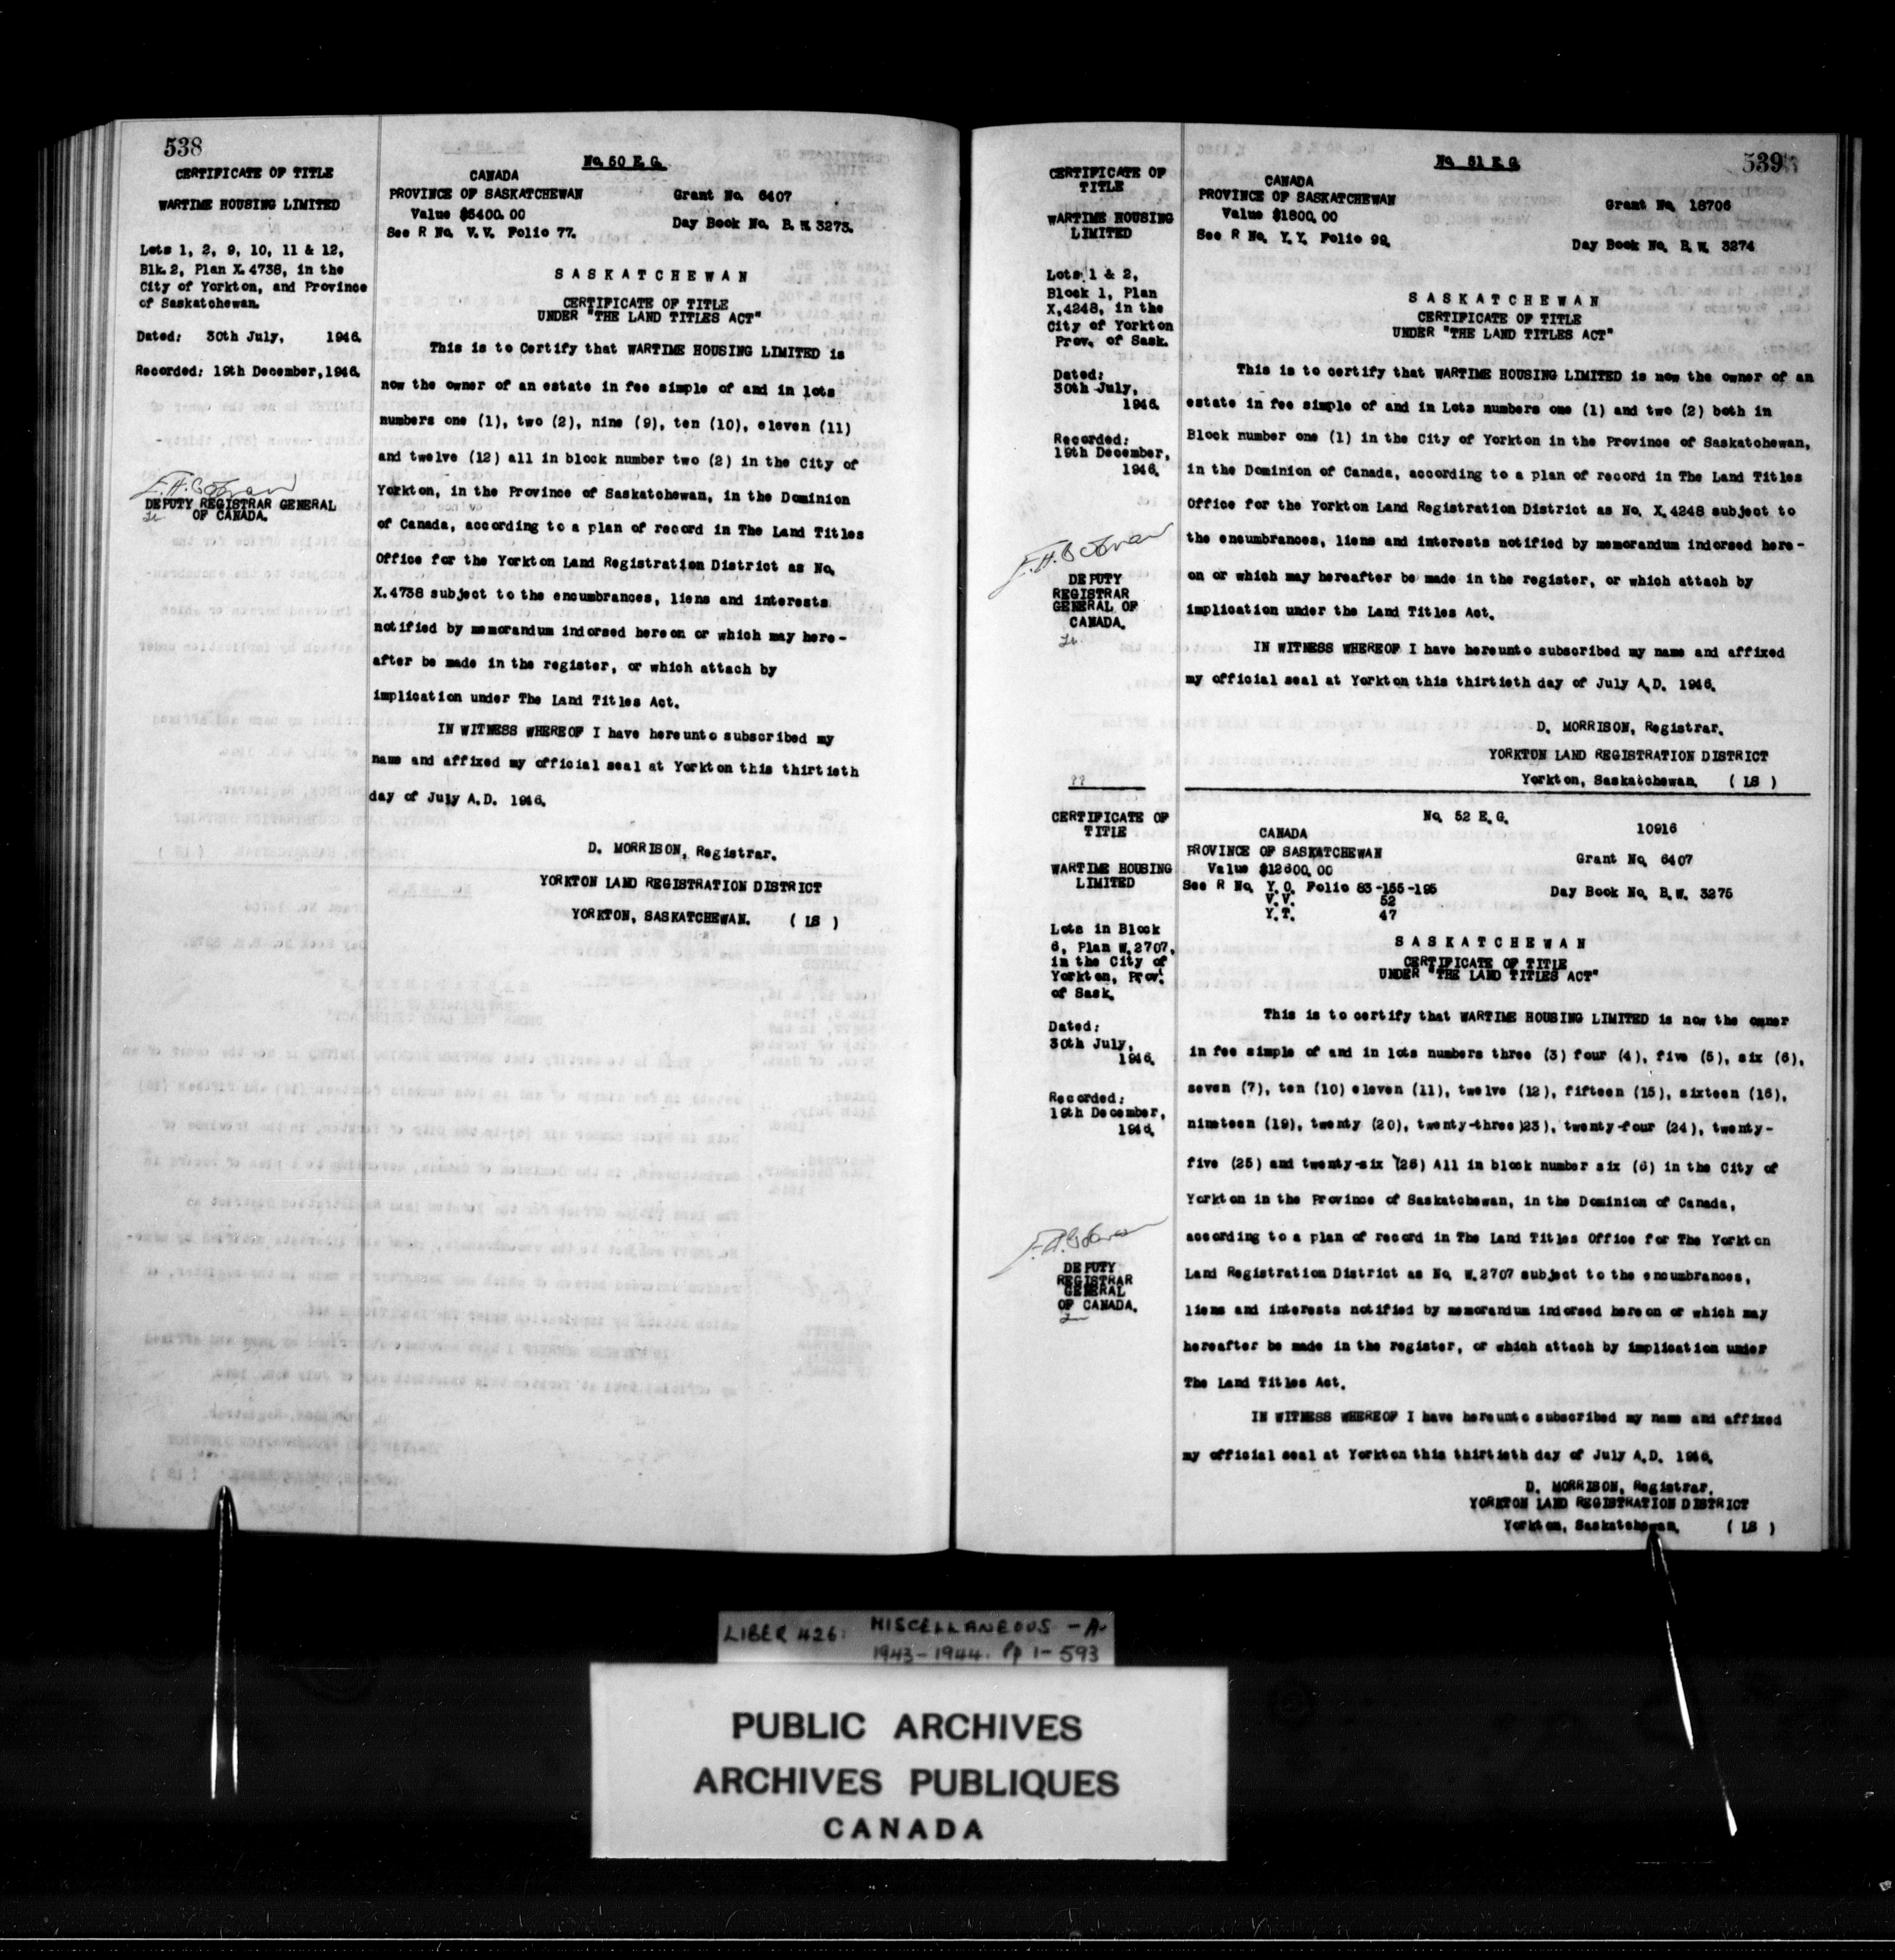 538
CERTIFICATE OF TITLE
WARTIME HOUSING LIMITED
Lots 1, 2, 9, 10, 11 & 12,
Blk. 2, Plan X. 4738, in the
City of Yorkton, and Province
of Saskatchewan.
Dated: 30th July, 1946.
Recorded: 19th December, 1946.
DEPUTY REGISTRAR GENERAL
OF CANADA.
No. 50 E. G.
CANADA
PROVINCE OF SASKATCHEWAN
Value $5400.00
See R No. V.V. Folio 77.
Grant No. 6407
Day Book No. B.W. 3273.
SASKATCHEWAN
CERTIFICATE OF TITLE
UNDER "THE LAND TITLES ACT"
This is to Certify that WARTIME HOUSING LIMITED is
now the owner of an estate in fee simple of and in lots
numbers one (1), two (2), nine (9), ten (10), eleven (11)
and twelve (12) all in block number two (2) in the City of
Yorkton, in the Province of Saskatchewan, in the Dominion
of Canada, according to a plan of record in The Land Titles
Office for the Yorkton Land Registration District as No.
X.4738 subject to the encumbrances, liens and interests
notified by memorandum indorsed hereon or which may here-
after be made in the register, or which attach by
implication under The Land Titles Act.
IN WITNESS WHEREOF I have hereunto subscribed my
name and affixed my official seal at Yorkton this thirtieth
day of July A.D. 1946.
D. MORRISON, Registrar.
YORKTON LAND REGISTRATION DISTRICT
YORKTON, SASKATCHEWAN. ( LS )
539
CERTIFICATE OF
TITLE
WARTIME HOUSING
LIMITED
Lots 1 & 2,
Block 1, Plan
X.4248, in the
City of Yorkton
Prov. of Sask.
Dated:
30th July,
1946.
Recorded:
19th December,
1946.
DEPUTY
REGISTRAR
GENERAL OF
CANADA.
No. 51 E. G.
CANADA
PROVINCE OF SASKATCHEWAN
Value $1800.00
See R No. Y.Y. Folio 99.
Grant No. 18706
Day Book No. B.W. 3274
SASKATCHEWAN
CERTIFICATE OF TITLE
UNDER "THE LAND TITLES ACT"
This is to certify that WARTIME HOUSING LIMITED is now the owner of an
estate in fee simple of and in Lots numbers one (1) and two (2) both in
Block number one (1) in the City of Yorkton in the Province of Saskatchewan,
in the Dominion of Canada, according to a plan of record in The Land Titles
Office for the Yorkton Land Registration District as No. X.4248 subject to
the encumbrances, liens and interests notified by memorandum indorsed here-
on or which may hereafter be made in the register, or which attach by
implication under the Land Titles Act.
IN WITNESS WHEREOF I have hereunto subscribed my name and affixed
my official seal at Yorkton this thirtieth day of July A.D. 1946.
D. MORRISON, Registrar.
YORKTON LAND REGISTRATION DISTRICT
Yorkton, Saskatchewan. ( LS )
CERTIFICATE OF
TITLE
WARTIME HOUSING
LIMITED
Lots in Block
6, Plan W.2707,
in the City of
Yorkton, Prov.
of Sask.
Dated:
30th July,
1946.
Recorded:
19th December,
1946.
DEPUTY
REGISTRAR
GENERAL
OF CANADA.
No. 52 E. G.
CANADA
PROVINCE OF SASKATCHEWAN
See R No. Y.O. Folio 83-155-195
V.V. 52
Y.T. 47
10916
Grant No. 6407
Day Book No. B.W. 3275
SASKATCHEWAN
CERTIFICATE OF TITLE
UNDER "THE LAND TITLES ACT"
This is to certify that WARTIME HOUSING LIMITED is now the owner
in fee simple of and in lots numbers three (3) four (4), five (5), six (6),
seven (7), ten (10) eleven (11), twelve (12), fifteen (15), sixteen (16),
nineteen (19), twenty (20), twenty-three )23), twenty-four (24), twenty-
five (25) and twenty-six (26) All in block number six (6) in the City of
Yorkton in the Province of Saskatchewan, in the Dominion of Canada,
according to a plan of record in The Land Titles Office for The Yorkton
Land Registration District as No. W.2707 subject to the encumbrances,
liens and interests notified by memorandum indorsed hereon or which may
hereafter be made in the register, or which attach by implication under
The Land Titles Act.
IN WITNESS WHEREOF I have hereunto subscribed my name and affixed
my official seal at Yorkton this thirtieth day of July A.D. 1946.
D. MORRISON, Registrar.
YORKTON LAND REGISTRATION DISTRICT
Yorkton, Saskatchewan. ( LS )
LIBER 426: MISCELLANEOUS - A-
1943-1944. Pp 1-593
PUBLIC ARCHIVES
ARCHIVES PUBLIQUES
CANADA